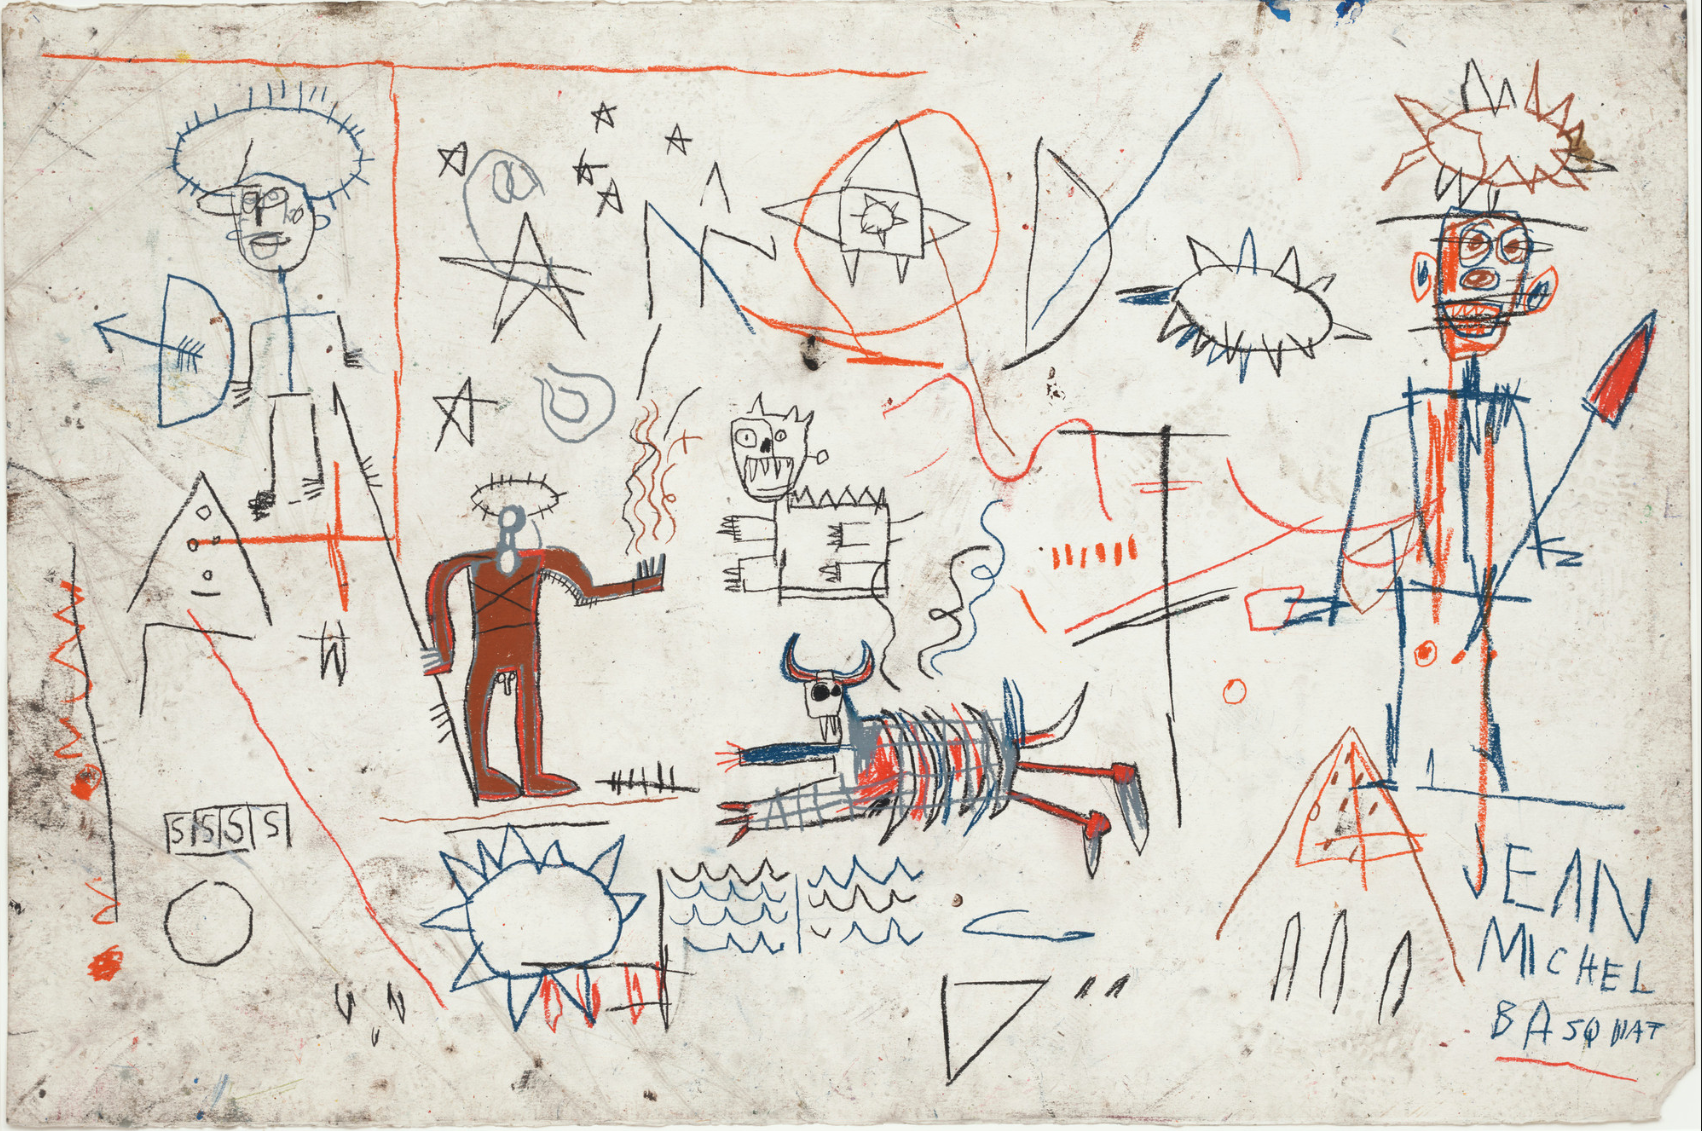 SSSS
JEAN
MICHEL
BASQUIAT